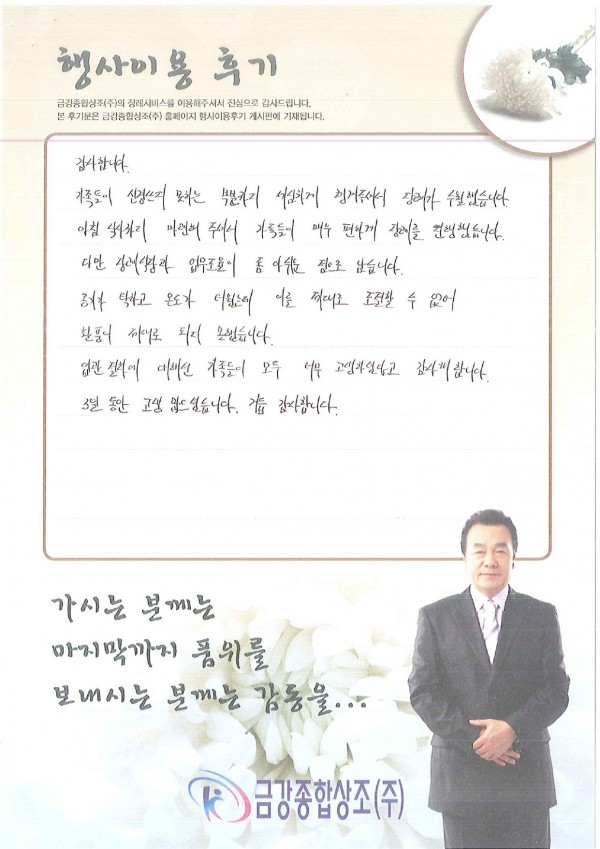 행사이용 후기
금강종합상조(주)의 장례서비스를 이용해주셔서 진심으로 감사드립니다.
본 후기분은 금강종합상조(주) 홈페이지 행사이용후기 게시판에 기재됩니다.
감사합니다.
가족들이 신경쓰지 못하는 부분까지 세심하게 챙겨주셔서 장례가 수월했습니다.
아침 식사까지 마련해 주셔서 가족들이 매우 편하게 장례를 진행했습니다.
다만 장례식장과 업무조율이 좀 아쉬운 점으로 남습니다.
공기가 탁하고 온도가 더웠는데 이를 제대로 조절할 수 없어
환풍이 제대로 되지 못했습니다.
입관 절차에 대해선 가족들이 모두 너무 고생하셨다고 감사해 합니다.
3일 동안 고생 많으셨습니다. 거듭 감사합니다.
가시는 분께는
마지막까지 품위를
보내시는 분께는 감동을...
금강종합상조(주)